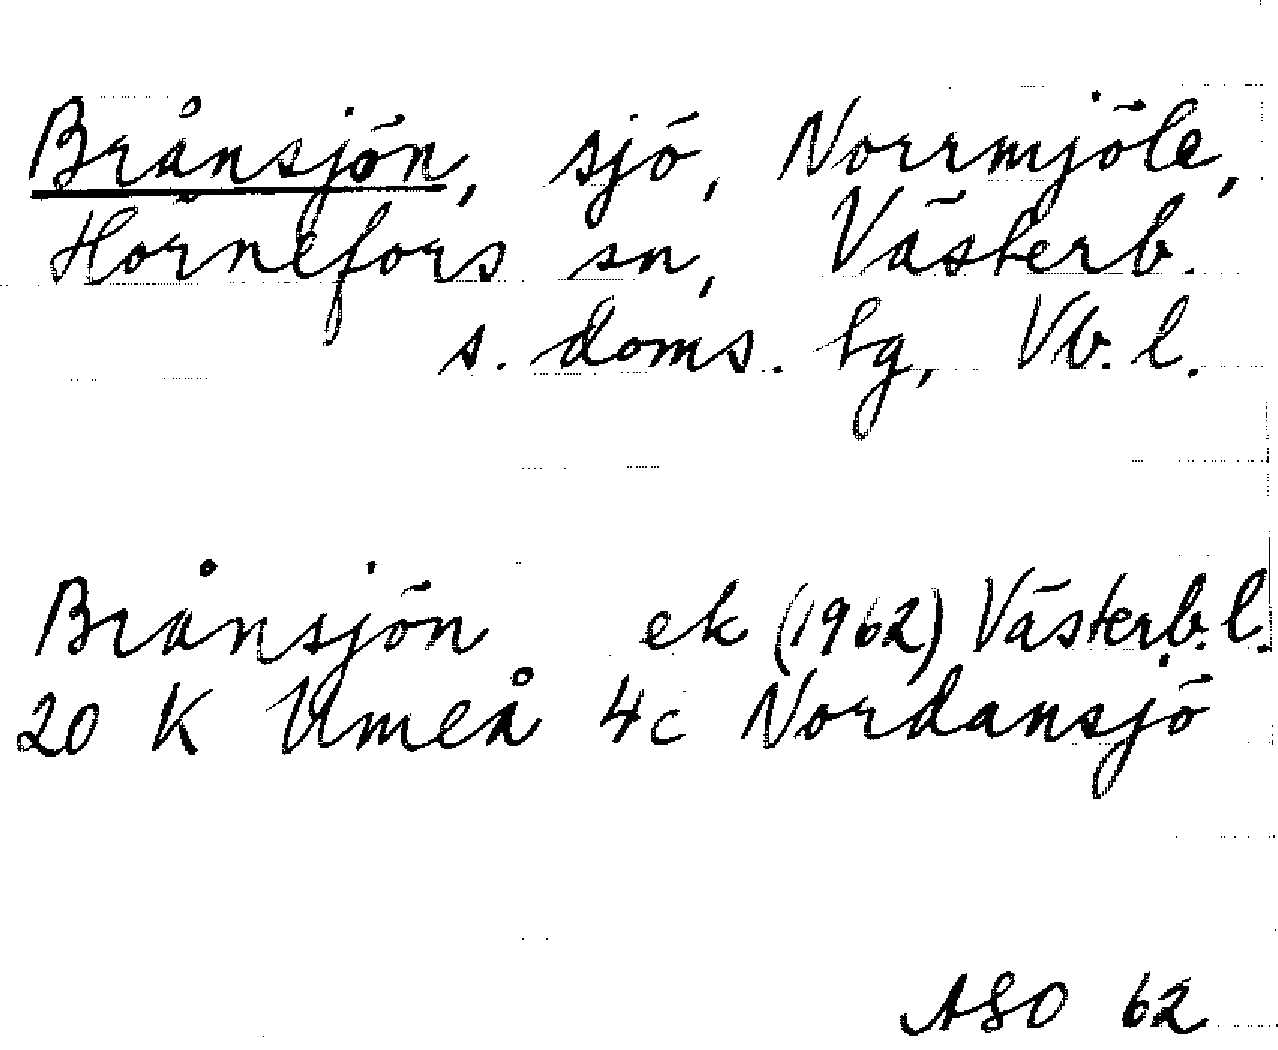 Brånsjön, sjö, Norrmjöle,
Hörnefors sn, Västerb.
s. doms. hg, Vb. l.
Brånsjön ek (1962) Västerb. l.
20 K Umeå 4c Nordansjö
ASO 62